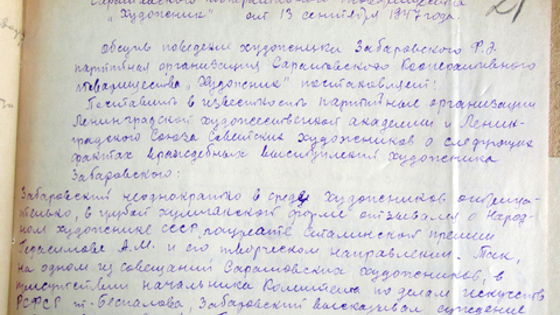 Саратовского Кооперативного товарищества
„Художник" от 13 сентября 1947 года.
21
Обсудив поведение художника Забаровского Р.Э.
партийная организация Саратовского Кооперативного
товарищества „Художник" постановляет:
Поставить в известность партийные организации
Ленинградской художественной академии и Ленин-
градского Союза Советских художников о следующих
фактах враждебных выступлений художника
Забаровского:
Забаровский неоднократно в среде художников
тельно, в грубой хулиганской форме отзывался о Народ-
ном художнике СССР, лауреате сталинской премии
Герасимове А.М. и его творческом направлении. Так,
на одном из совещаний Саратовских художников, в
присутствии начальника Комитета по делам искусств
РСФСР т. Беспалова, Забаровский высказывал суждение